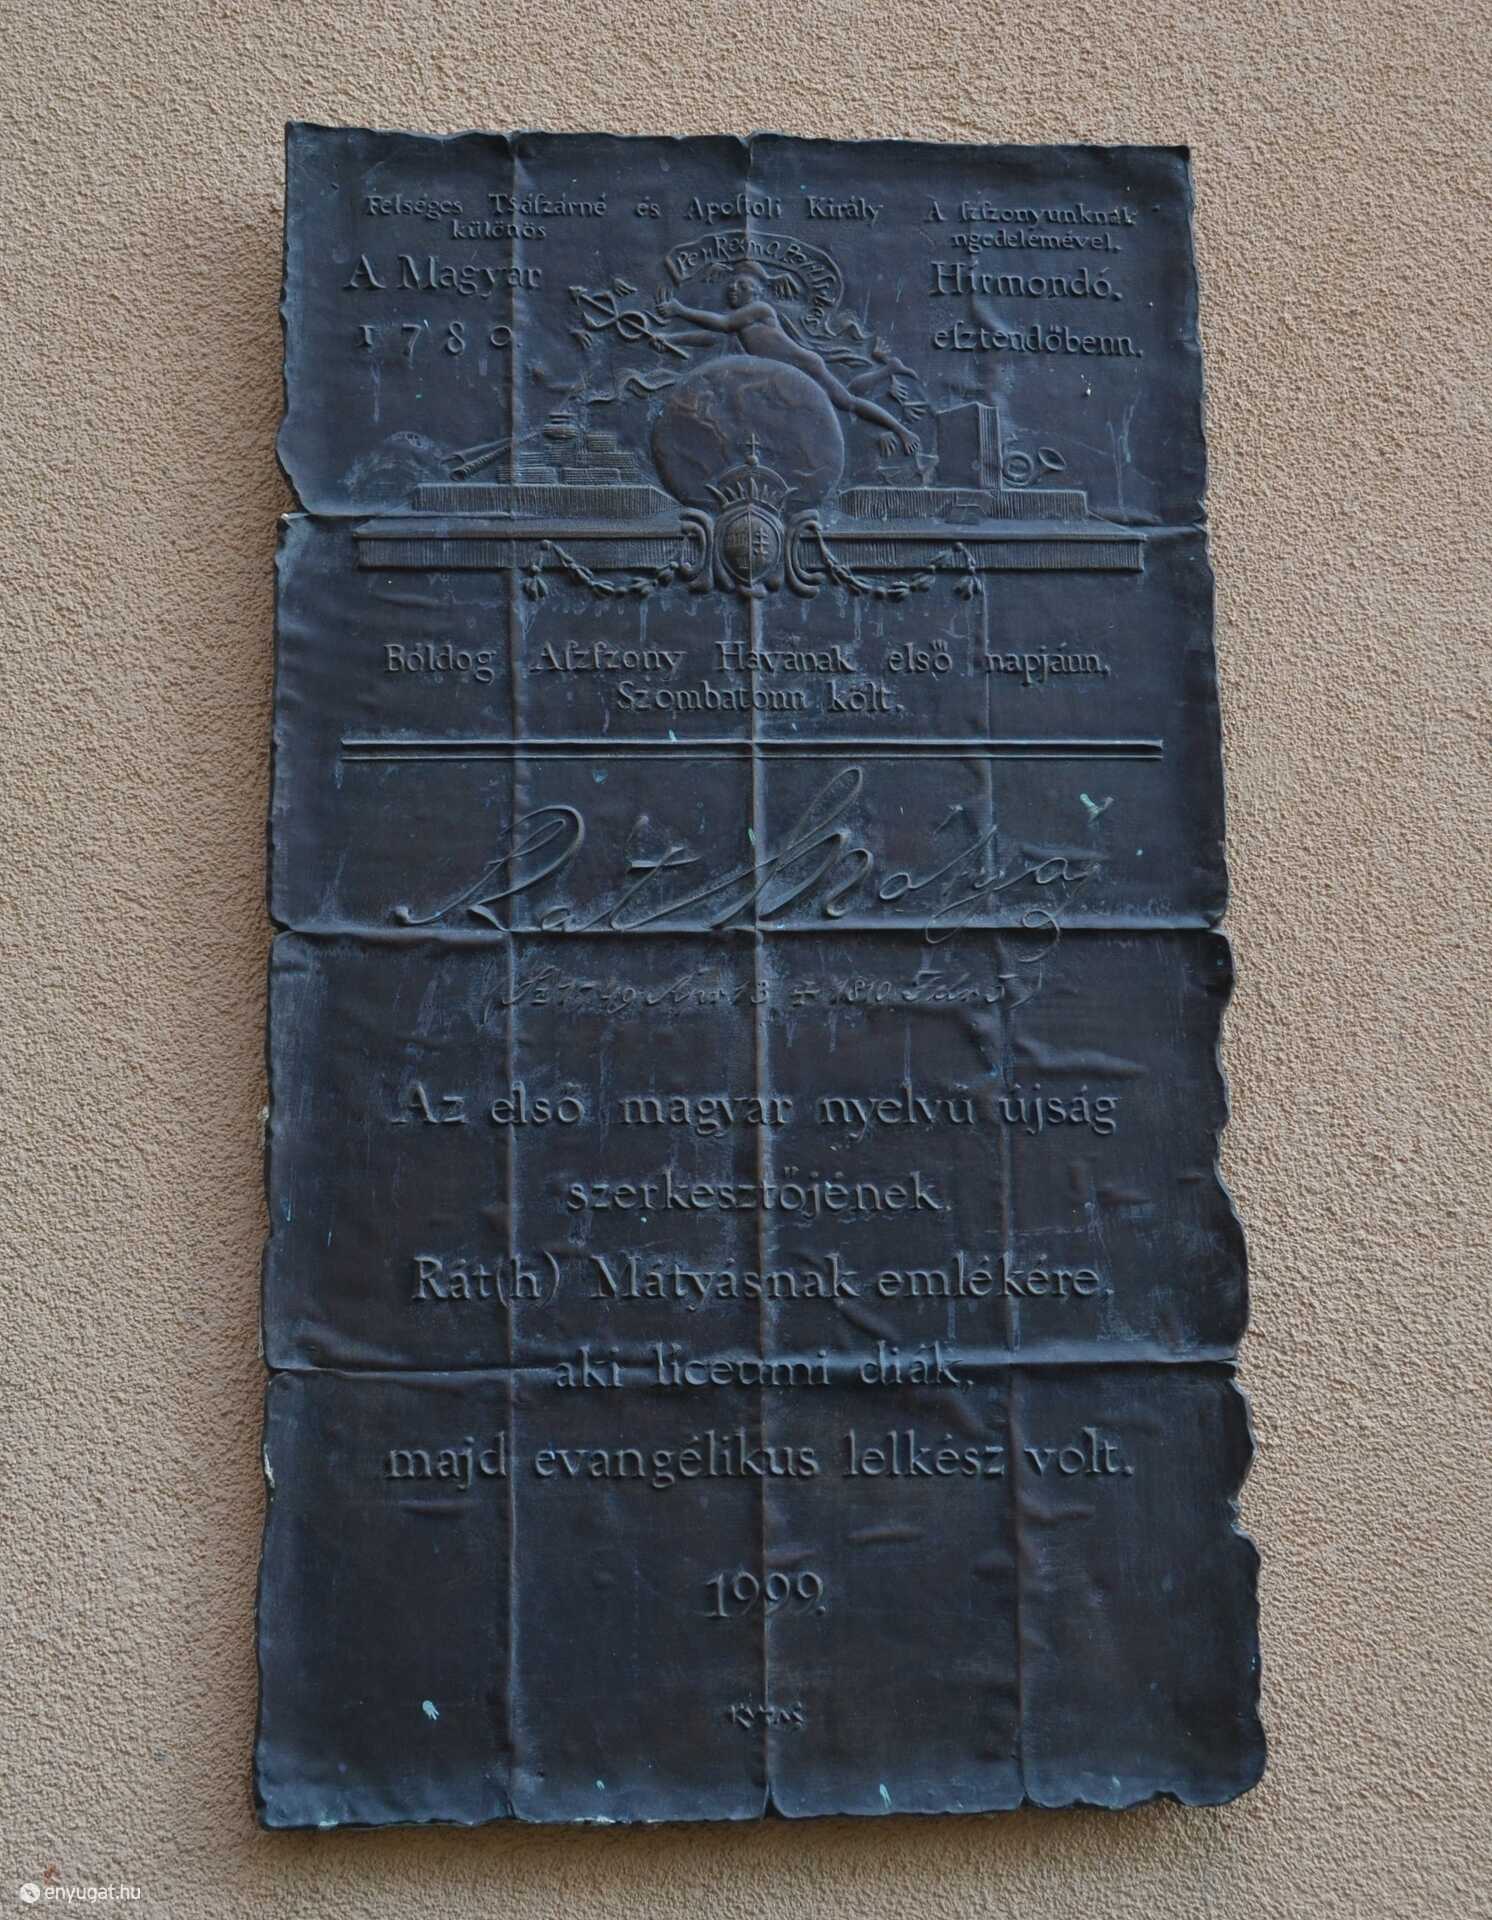 Felséges Tsáſzárné és Apoſtoli Király A ſzſzonyunknak
különös ngedelemével.
A Magyar Hírmondó.
1780. eſztendőbenn.
Bóldog Aſzſzony Havának első napjánn,
Szombatonn költ.
Rat Mátyás
1749 Apr 13 + 1810
Az első magyar nyelvű újság
szerkesztőjének,
Rát(h) Mátyásnak emlékére,
aki líceumi diák,
majd evangélikus lelkész volt.
1999.
enyugat.hu